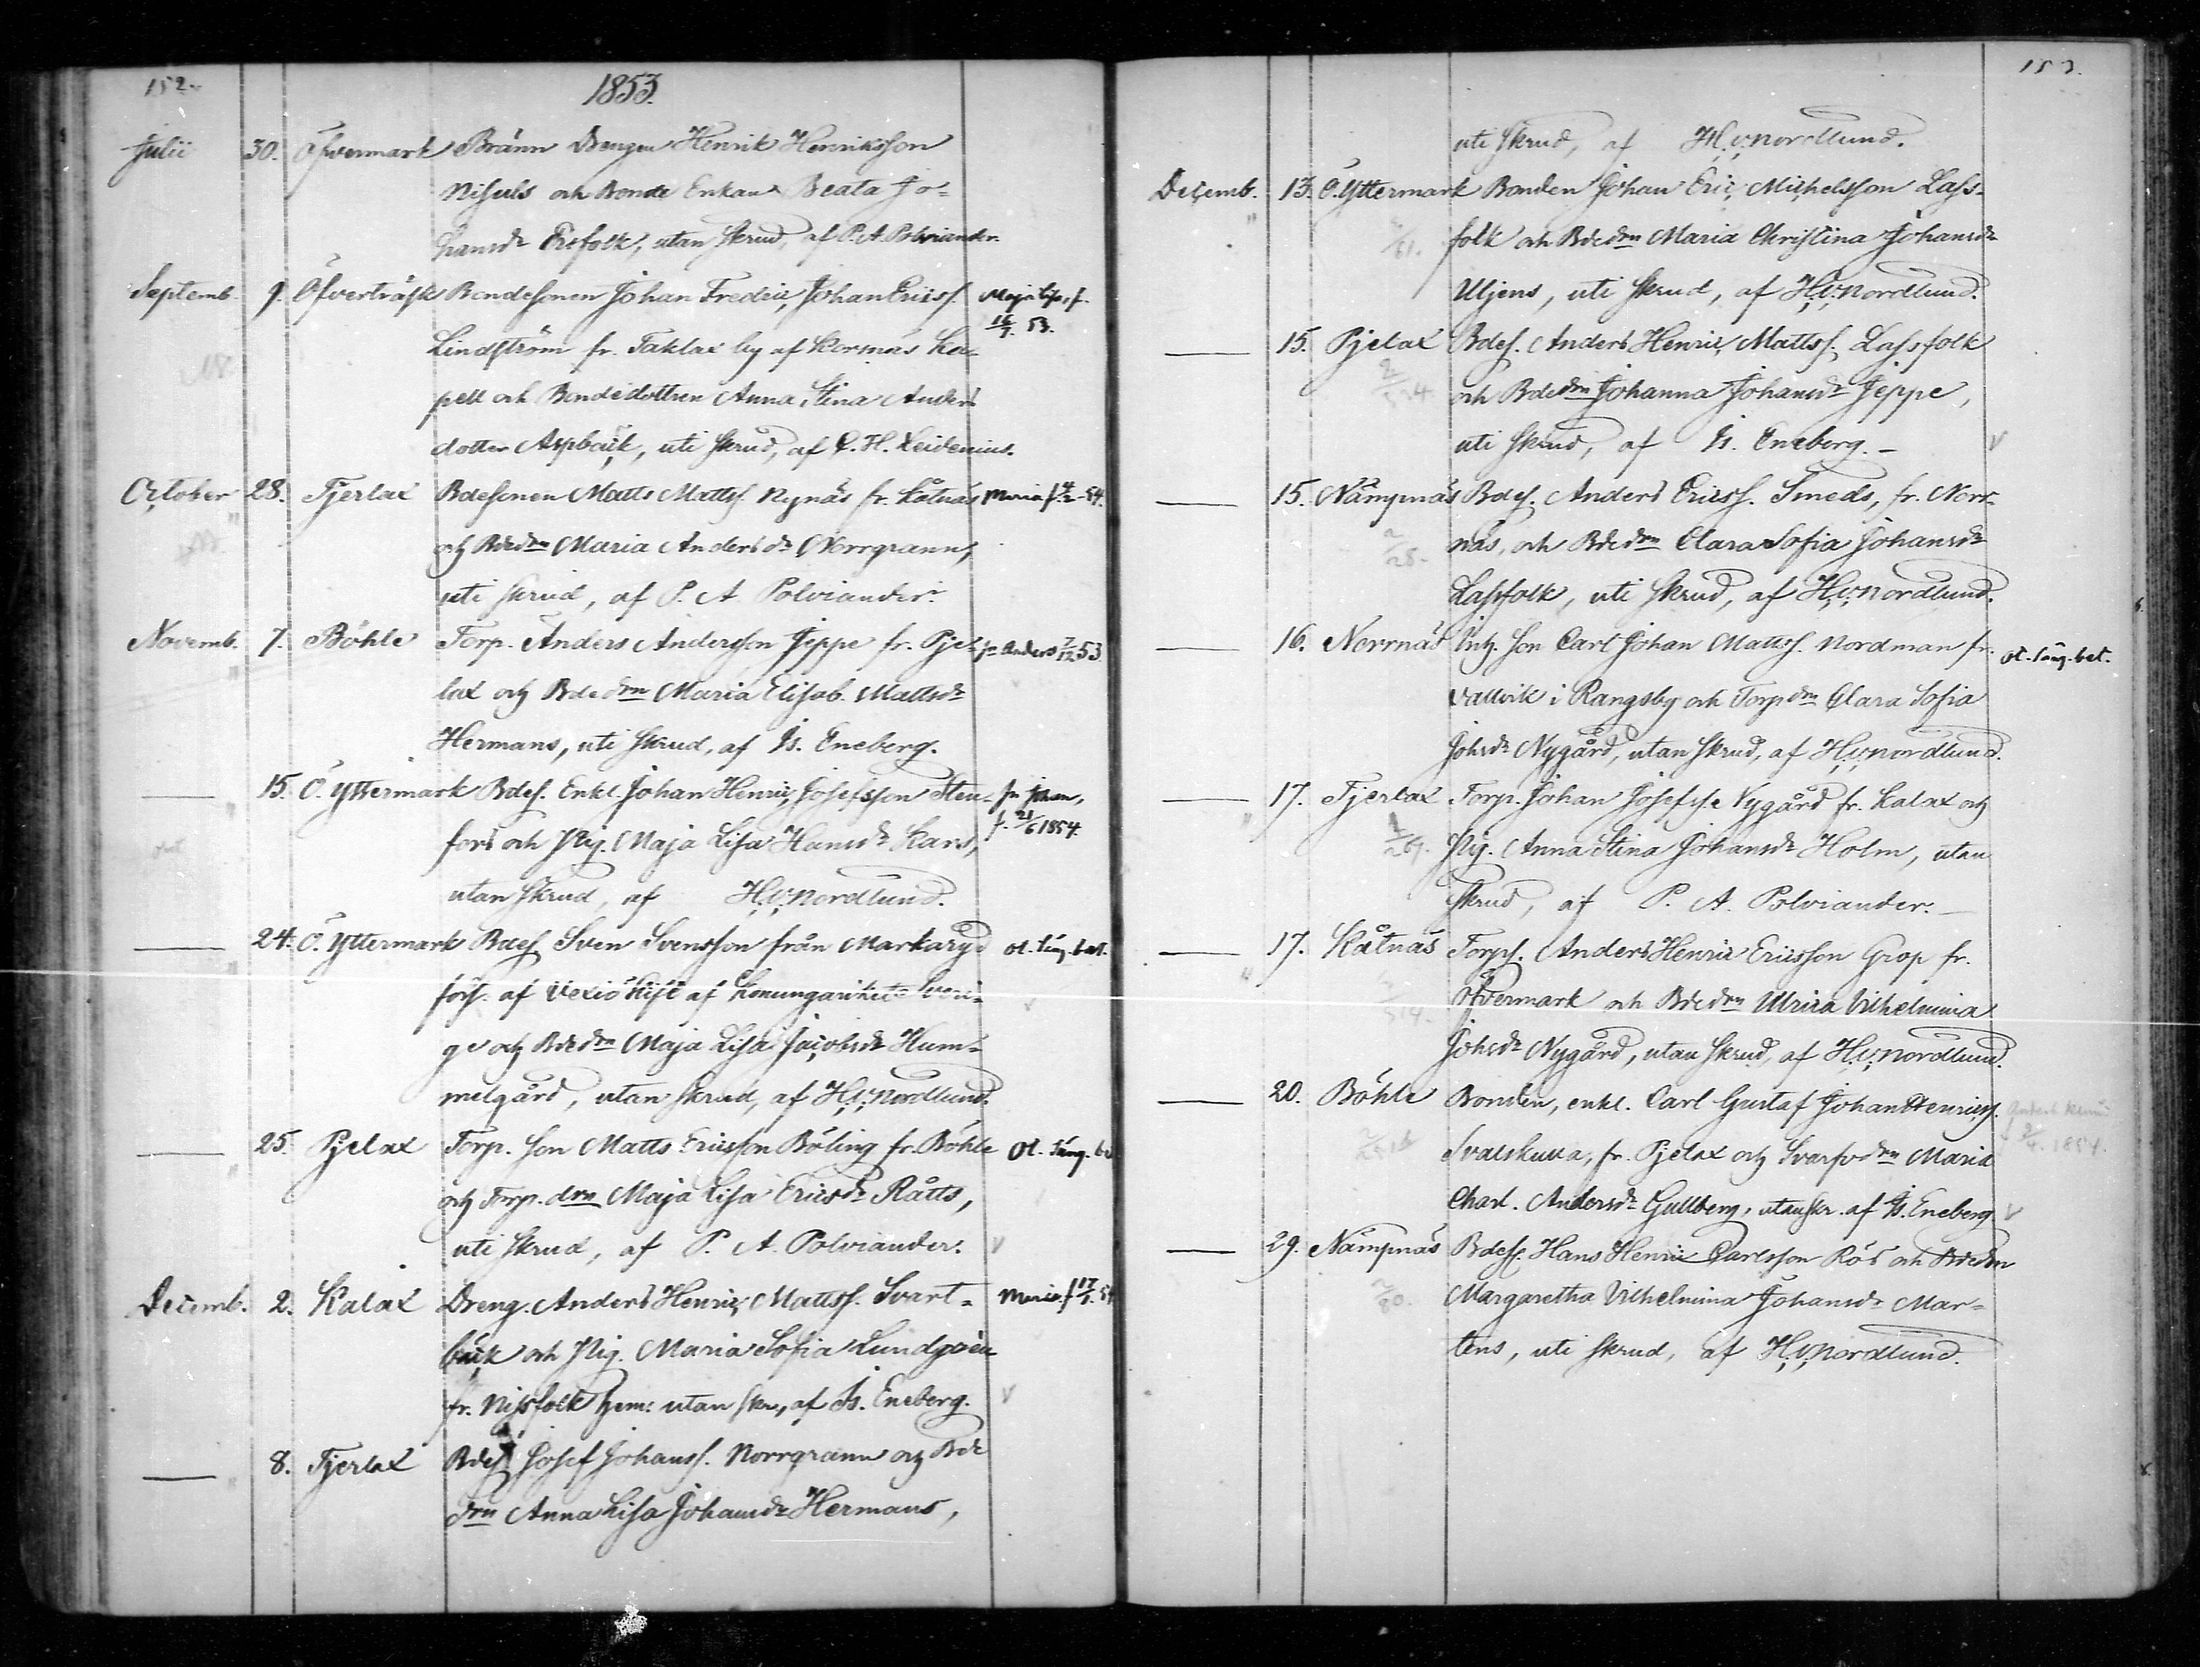 152.
1853.
Julii 30. Öfvermark Bränn Drengen Henrik Henriksson
Nisuls och Bonde Enkan Beata Jo-
hansdr Ersfolk, utan skrud, af P. A. Polviander.
Septemb. 9. Öfverträsk Bondesonen Johan Fredric Johan Ericss. Maja Lisa, f.
Lindström fr. Taklax by af Korsnäs Ka- 16/7. 53.
pell och Bondedottren Anna Stina Anders
dotter Aspback, uti skrud, af C. H. Leidenius.
October 28. Tjerlax Bdesonen Matts Mattss. Nynäs fr. Kåtnäs Maria f. 54.
och Bdedrn Maria Andersdr Norrgrann,
uti skrud, af P. A. Polviander.
Novemb. 7. Böhle Torp. Anders Andersson Jeppe fr. Pje- Anders 7/12 53
lax och Bdedrn Maria Elisab. Mattsdr
Hermans, uti skrud, af Is. Eneberg.
15. Ö. Yttermark Bdes. Enkl. Johan Henric Josefsson Sten- Johan,
fors och Pig. Maja Lisa Hansdr Kars, f. 21/6 1854.
utan skrud, af H. v. Nordlund.
24. Ö. Yttermark Bdes. Sven Svensson från Markaryd ot. säng. bet.
förs. af Vexiö stift af Konungariket Sveri-
ge och Bdedrn Maja Lisa Jacobsdr Hum-
melgård, utan skrud, af H. v. Nordlund.
25. Pjelax Torp. son Matts Ericsson Böling fr. Böhle ot. säng. be
och Torp. drn Maja Lisa Ericsdr Råtts,
uti skrud, af P. A. Polviander.
Decemb. 2. Kalax Dreng. Anders Henric Mattss. Svart- Maria f. 17/1. 54
back och Pig. Maria Sofia Lundgrén
fr. Nissfolk hem: utan skr., af Is. Eneberg.
8. Tjerlax Bdes. Josef Johanss. Norrgrann och Bde
drn Anna Lisa Johansdr Hermans,
153.
uti skrud, af H. v. Nordlund.
Decemb. 13. Ö. Yttermark Bonden Johan Eric Michelsson Lass-
folk och Bdedrn Maria Christina Johansdr
Uljens, uti skrud, af H. v. Nordlund.
15. Pjelax Bdes. Anders Henric Mattss. Lassfolk
och Bdedrn Johanna Johansdr Jeppe,
uti skrud, af Is. Eneberg.
15. Nämpnäs Bdes. Anders Ericss. Smeds, fr. Norr-
näs, och Bdedrn Clara Sofia Johansdr
Lassfolk, uti skrud, af H. v. Nordlund.
16. Norrnäs Inh. son Carl Johan Mattss. Nordman fr. ot. säng. bet.
Vallvik i Rangsby och Torpdrn Clara Sofia
Johsdr Nygård, utan skrud, af H. v. Nordlund.
17. Tjerlax Torp. Johan Josefss. Nygård fr. Kalax och
Pig. Anna Stina Johansdr Holm, utan
skrud, af P. A. Polviander.
17. Kåtnäs Torps. Anders Henric Ericsson Grop fr.
Öfvermark och Bdedrn Ulrica Vilhelmina
Johsdr Nygård, utan skrud, af H. v. Nordlund.
20. Böhle Bonden, enkl. Carl Gustaf Johan Henricss.
Svalskulla, fr. Pjelax och Svarfvdrn Maria 1854.
Charl. Andersdr Gullberg, utan skr. af Is. Eneberg
29. Nämpnäs Bdess. Hans Henric Carlsson Rös och Bdedrn
Margaretha Vilhelmina Johansdr Mar-
tens, uti skrud, af H. v. Nordlund.